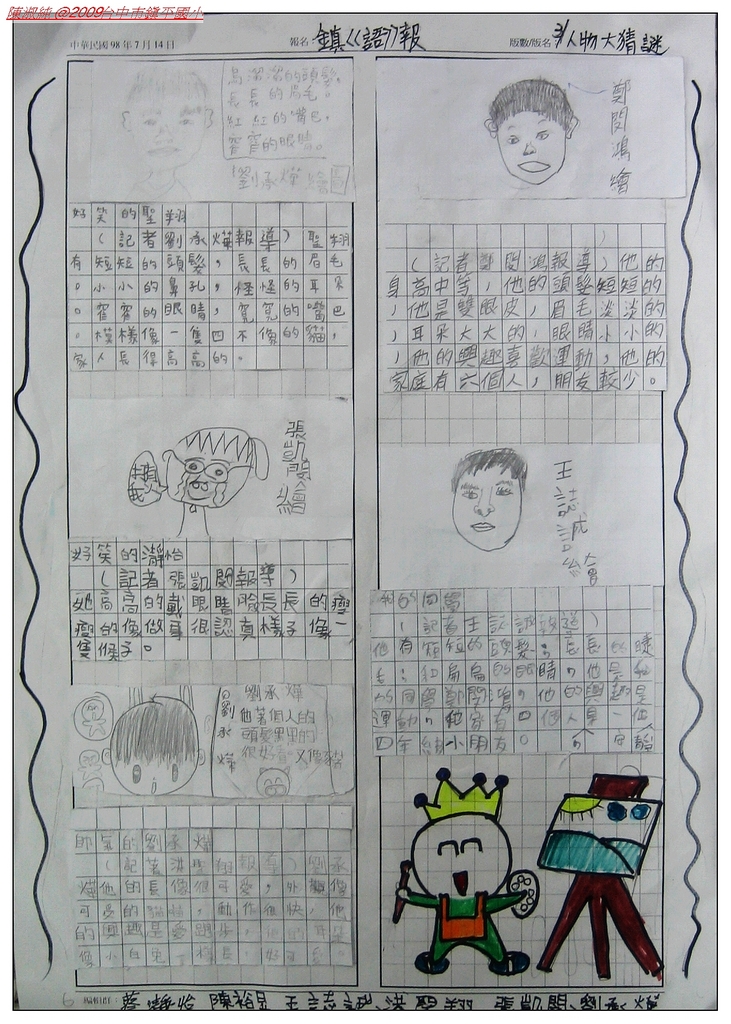 陳淑純 @2009台中市鎮平國小
中華民國 98 年 7 月 14 日
報名: 鎮ㄍ語ㄅ報
版數/版名: 3/人物大猜謎
烏溜溜的頭髮。
長長的眉毛。
紅紅的嘴巴。
窄窄的眼睛。
劉承燁繪圖
好笑的聖翔
(記者劉承燁報導)聖翔
有短短的頭髮,長長的眉毛
。小小的鼻孔,怪怪的耳朵
。窄窄的眼睛,寬寬的嘴巴
。模樣像一隻四不像的貓,
家人長得高高的。
張凱閔繪
好笑的瀞怡
(記者張凱閔報導)
她高高的戴眼睛臉長長的瘦
瘦的像做事很認真樣子像一
隻猴子。
劉承燁
劉承燁
他著個人的
頭髮黑里的
很好看又像豬
帥氣的劉承燁
(記著洪聖翔報導)劉承
燁他的長像很可愛,外貌像
可愛的貓怡,動作很快,他
的興趣是愛跑步,他的耳朵
像小白兔一樣長,好可愛。
鄭閔鴻繪
(記者鄭閔鴻報導)他的
身高中等,他的頭髮短短的
,他是雙眼皮,眉毛淡淡的
,耳朵大大的,眼睛小小的
,他的興趣喜歡運動,他的
家庭有六個人,朋友較少。
王誌誠繪
(記者王誌誠報道)
他有短短的頭髮,長長的睫
毛,和扁扁的眼睛,他是我
的同學鄭閔鴻,他的興趣是
運動,他家有四個人是一個
四年級小朋友。
6 編輯群: 蔡瀞怡 陳裕昱 王誌誠 洪聖翔 張凱閔 劉承燁